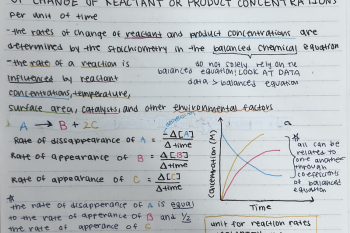 OF CHANGE OF REACTANT OR PRODUCT CONCENTRATIONS
per unit of time
-the rates of change of reactant and product concentrations are
determined by the stoichiometry in the balanced chemical equation
-the rate of a reaction is
influenced by reactant
concentrations, temperature,
surface area, catalysts, and other environmental factors
do not solely rely on the
balanced equation; LOOK AT DATA
data > balanced equation
A → B + 2C
Rate of disappearance of A = -Δ[A]
Δtime
Rate of appearance of B = Δ[B]
Δtime
Rate of appearance of C = Δ[C]
Δtime
Concentration (M)
Time
*
all can be
related to
one another
through
coefficients
of balanced
equation
*
the rate of disapperance of A is equal
to the rate of apperance of B and 1/2
the rate of apperance of C
unit for reaction rates